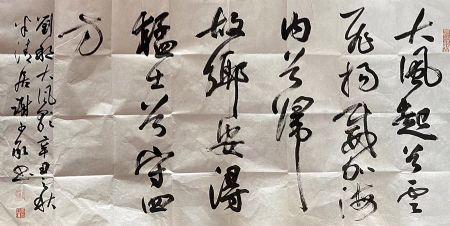 大風起兮雲
飛揚威加海
内兮歸
故鄉安得
猛士兮守四
方
劉邦大風歌辛丑秋
清居謝少書